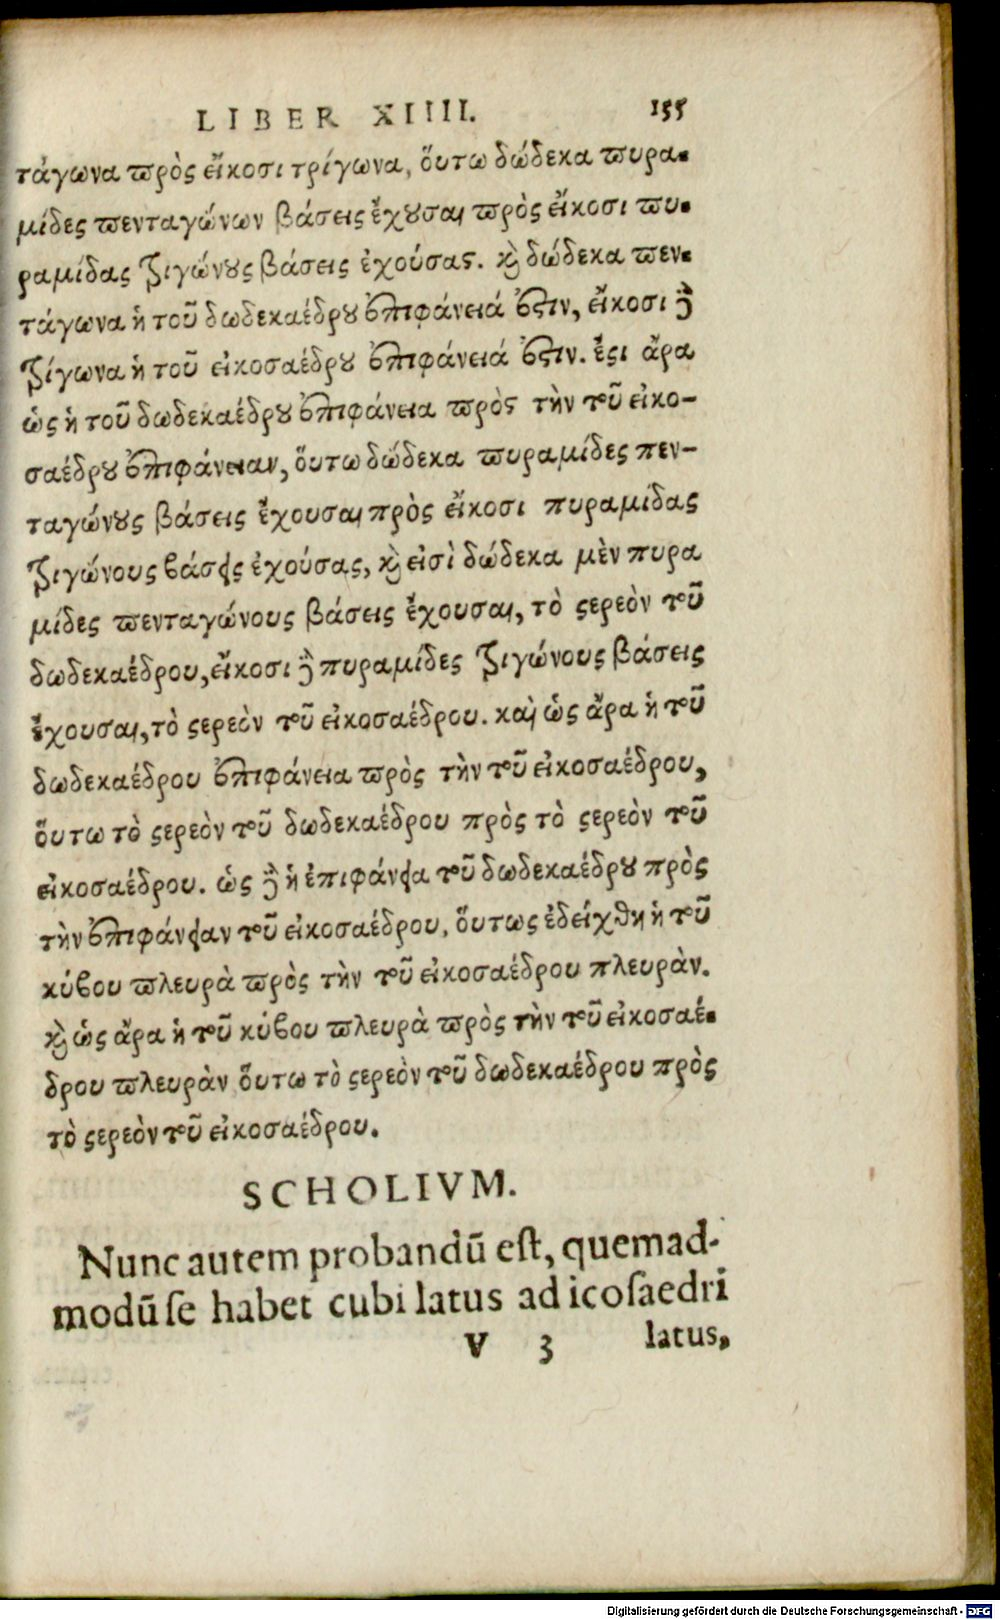 LIBER XIIII. 155
τάγωνα πρὸς εἴκοσι τρίγωνα, ὅυτω δώδεκα πυρα-
μίδες πενταγώνων βάσεις ἔχουσαι πρὸς εἴκοσι πυ-
ραμίδας τριγώνους βάσεις ἐχούσας. καὶ δώδεκα πεν-
τάγωνα ἡ τοῦ δωδεκαέδρου ἐπιφάνειά ἐστιν, εἴκοσι δὲ
τρίγωνα ἡ τοῦ εἰκοσαέδρου ἐπιφάνειά ἐστιν. ἔστι ἄρα
ὡς ἡ τοῦ δωδεκαέδρου ἐπιφάνεια πρὸς τὴν τοῦ εἰκο-
σαέδρου ἐπιφάνειαν, ὅυτω δώδεκα πυραμίδες πεν-
ταγώνους βάσεις ἔχουσαι πρὸς εἴκοσι πυραμίδας
τριγώνους βάσεις ἐχούσας, καὶ εἰσὶ δώδεκα μὲν πυρα
μίδες πενταγώνους βάσεις ἔχουσαι, τὸ στερεὸν τοῦ
δωδεκαέδρου, εἴκοσι δὲ πυραμίδες τριγώνους βάσεις
ἔχουσαι, τὸ στερεὸν τοῦ εἰκοσαέδρου. καὶ ὡς ἄρα ἡ τοῦ
δωδεκαέδρου ἐπιφάνεια πρὸς τὴν τοῦ εἰκοσαέδρου,
ὅυτω τὸ στερεὸν τοῦ δωδεκαέδρου πρὸς τὸ στερεὸν τοῦ
εἰκοσαέδρου. ὡς δὲ ἡ ἐπιφάνεια τοῦ δωδεκαέδρου πρὸς
τὴν ἐπιφάνειαν τοῦ εἰκοσαέδρου, ὅυτως ἐδείχθη ἡ τοῦ
κύβου πλευρὰ πρὸς τὴν τοῦ εἰκοσαέδρου πλευρὰν.
καὶ ὡς ἄρα ἡ τοῦ κύβου πλευρὰ πρὸς τὴν τοῦ εἰκοσαέ-
δρου πλευρὰν ὅυτω τὸ στερεὸν τοῦ δωδεκαέδρου πρὸς
τὸ στερεὸν τοῦ εἰκοσαέδρου.
SCHOLIVM.
Nunc autem probandū est, quemad-
modū se habet cubi latus ad icosaedri
V 3 latus,
Digitalisierung gefördert durch die Deutsche Forschungsgemeinschaft - DFG